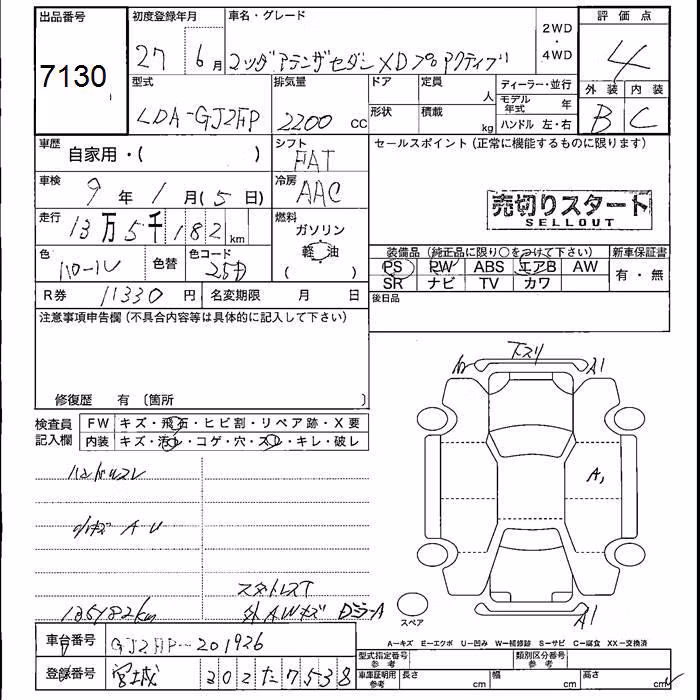 出品番号 初度登録年月 車名・グレード 2WD・4WD 評価点
7130 27 6月 マツダアテンザセダンXDプロアクティブ 4
型式 排気量 ドア 定員 人 ディーラー・並行 外装 内装
LDA-GJ2FP 2200 cc 形状 積載 kg モデル年式 年 B C
ハンドル 左・右
車歴 自家用・( ) シフト FAT セールスポイント (正常に機能するものに限ります)
車検 9年1月(5日) 冷房 AAC
売切りスタート
SELLOUT
走行 13万5千182km 燃料 ガソリン
軽 油
( )
色 色替 色コード 25D
装備品 (純正品に限り○をつけて下さい) 新車保証書
PS PW ABS エアB AW 有・無
SR ナビ TV カワ
R券 11330円 名変期限 月 日 後日品
注意事項申告欄 (不具合内容等は具体的に記入して下さい)
修復歴 有 〔箇所 〕
検査員記入欄 FW キズ・飛石・ヒビ割・リペア跡・X要
内装 キズ・汚れ・コゲ・穴・スレ・キレ・破レ
下スリ
A1
A1
ハンドルスレ
A1
スタットレスT
135182km 外AWキズ DミラーA
スペア
A－キズ E－エクボ U－凹み W－補修跡 S－サビ C－腐食 XX－交換済
車台番号 GJ2FP-201926 型式指定番号 参考 類別区分番号 参考
登録番号 宮城 302た7538 車庫証明用 参考 長さ cm 幅 cm 高さ cm